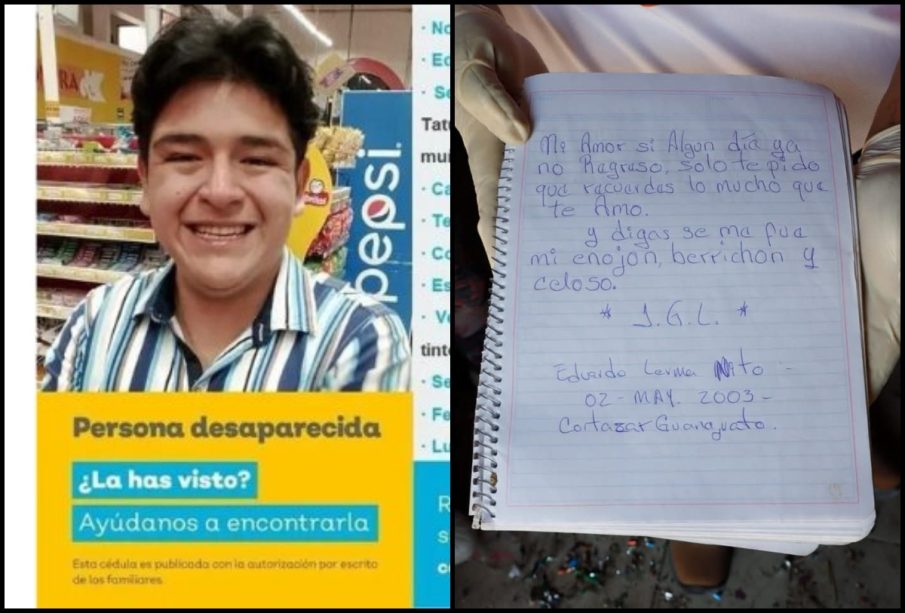 pepsi
Persona desaparecida
¿La has visto?
Ayúdanos a encontrarla
Esta cédula es publicada con la autorización por escrito
de los familiares.
Mi Amor si Algun día ya
no Regreso, solo te pido
que recuerdes lo mucho que
te Amo.
y digas se me fue
mi enojon, berrichon y
celoso.
* J.G.L. *
Eduardo Lerma Nito -
02 - MAY. 2003 -
Cortazar Guanajuato.